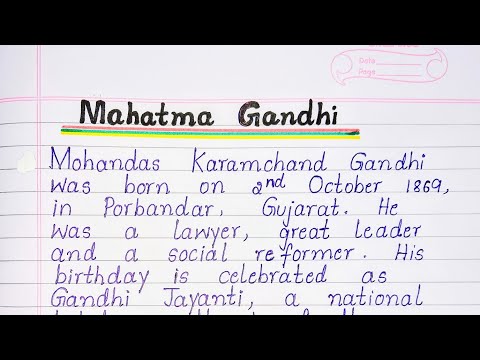 Date
Page
Mahatma Gandhi
Mohandas Karamchand Gandhi
was born on 2nd October 1869,
in Porbandar, Gujarat. He
was a lawyer, great leader
and a social reformer. His
birthday is celebrated as
Gandhi Jayanti, a national